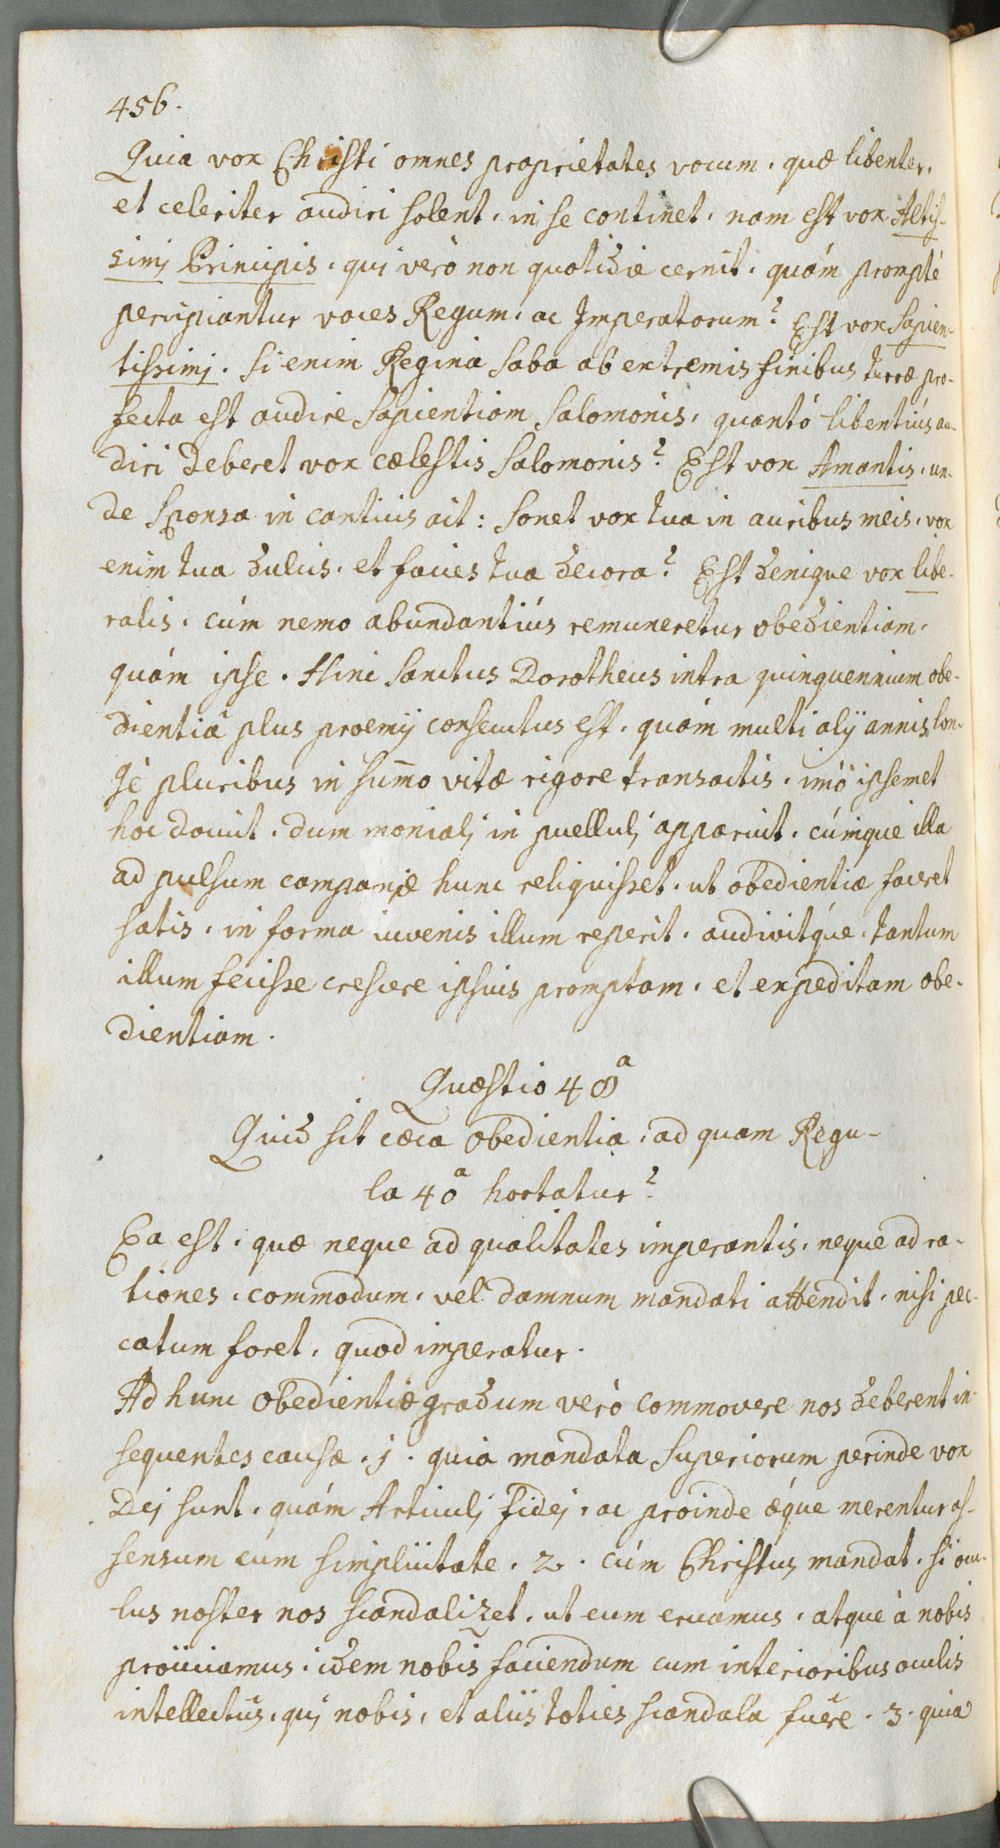 456.
Quia vox Christi omnes proprietates vocum, quæ libenter,
et celeriter audiri solent, in se continet, nam est vox Altis-
simj Principis, quj verò non quotidie cernit, quám prompté
percipiantur voces Regum, ac Imperatorum? Est vox Sapien-
tissimj. Si enim Regina Saba ab extremis finibus terræ pro-
fecta est audire sapientiam Salomonis, quantó libentiús au-
diri deberet vox cælestis Salomonis? Est vox Amantis, un-
de Sponsa in canticis ait: Sonet vox tua in auribus meis, vox
enim tua dulcis, et facies tua decora? Est denique vox libe-
ralis, cúm nemo abundantiús remuneretur obedientiam,
quám ipse. Hinc Sanctus Dorotheus intra quinquennium obe-
dientiâ plus proemij consecutus est, quám multi alij annis lon-
gè pluribus in sum̄o vitæ rigore transactis, imò ipsemet
hoc docuit, dum monialj in puellulj apparuit, cúmque illa
ad pulsum campanæ hunc reliquisset, ut obedientiæ faceret
satis, in forma iuvenis illum reperit, audivitque, tantum
illum fecisse crescere ipsius promptam, et expeditam obe-
dientiam.
Quæstio 48ª
Quid sit cæca obedientia, ad quam Regu-
la 40ª hortatur?
Ea est, quæ neque ad qualitates imperantis, neque ad ra-
tiones, commodum, vel damnum mandati attendit, nisi pec-
catum foret, quod imperatur.
Ad hunc obedientiæ gradum verò commovere nos deberent in-
sequentes causæ. 1. quia mandata Superiorum perinde vox
Dej sunt, quám Articulj Fidej, ac proinde æque merentur as-
sensum cum simplicitate. 2. cúm Christus mandat, si ocu-
lus noster nos scandalizet, ut eum eruamus, atque à nobis
proijciamus, idem nobis faciendum cum interioribus oculis
intellectûs, quj nobis, et aliis toties scandala fuêre. 3. quia